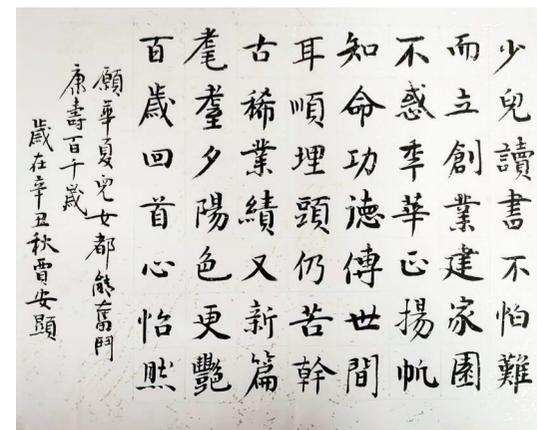 少兒讀書不怕難
而立創業建家園
不惑年華正揚帆
知命功德傳世間
耳順埋頭仍苦幹
古稀業績又新篇
耄耋夕陽色更艷
百歲回首心怡然
願華夏兒女都能奮鬥
康壽百千歲
歲在辛丑秋賈安顯